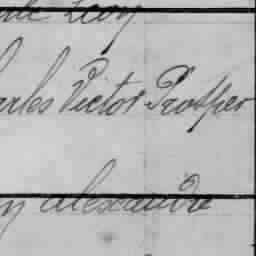 Léon
arles Victor Prosper
y alexandre